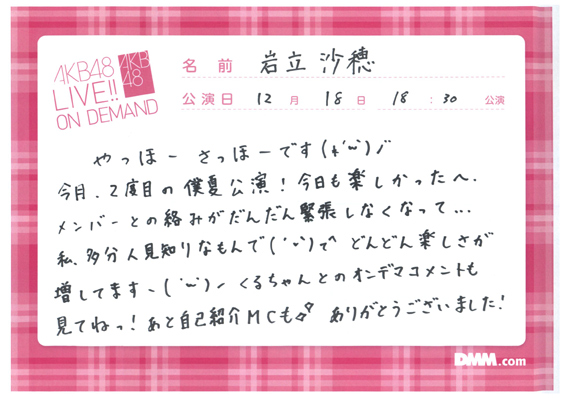 AKB48
LIVE!!
ON DEMAND
AKB
48
名前 岩立 沙穂
公演日 12月 18日 18:30 公演
やっほー さっほーです(*'ω')ノ
今月、2度目の僕夏公演!今日も楽しかったへ。
メンバーとの絡みがだんだん緊張しなくなって…
私、多分人見知りなもんで('ω')で どんどん楽しさが
増してます、('ω')ノ くるちゃんとのオンデマコメントも
見てねっ!あと自己紹介MCも ありがとうございました!
DMM.com